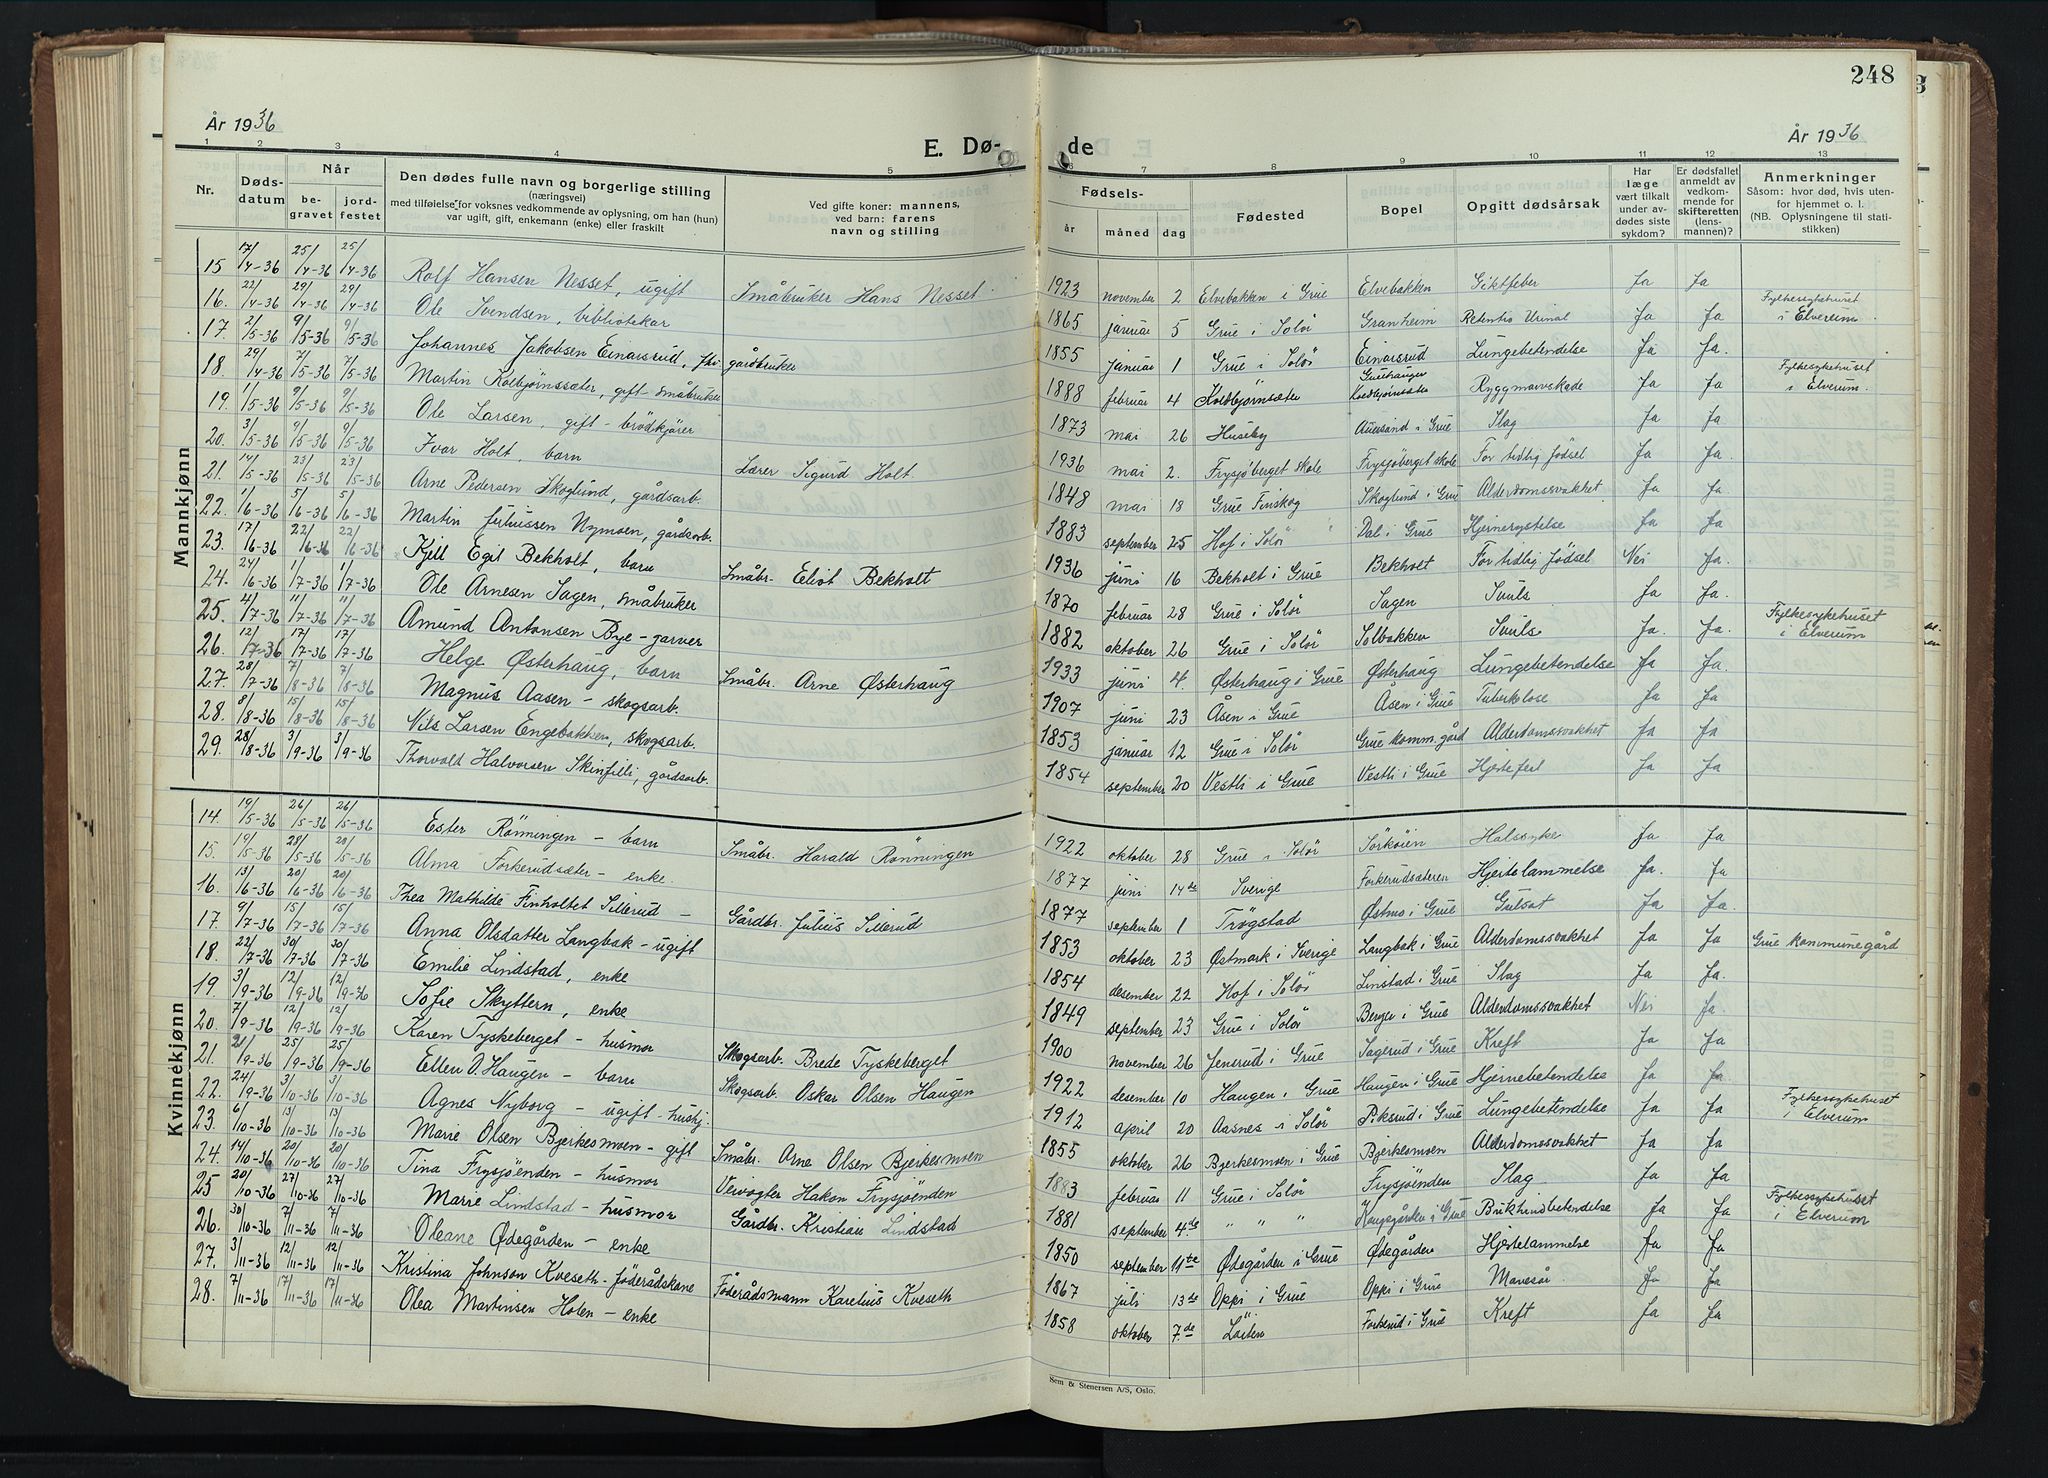 248
År 1936
E. Dø-
de
År 1936
1 2 3 4 5 6 7 8 9 10 11 12 13
Nr.
Døds-
datum
Når
be-
gravet
jord-
festet
Den dødes fulle navn og borgerlige stilling
(næringsvei)
med tilføielse for voksnes vedkommende av oplysning, om han (hun)
var ugift, gift, enkemann (enke) eller fraskilt
Ved gifte koner: mannens,
ved barn: farens
navn og stilling
Fødsels-
år måned dag
Fødested
Bopel
Opgitt dødsårsak
Har
læge
vært tilkalt
under av-
dødes siste
sykdom?
Er dødsfallet
anmeldt av
vedkom-
mende for
skifteretten
(lens-
mannen)?
Anmerkninger
Såsom: hvor død, hvis uten-
for hjemmet o. l.
(NB. Oplysningene til stati-
stikken)
Mannkjønn
15 17/4-36 25/4-36 25/4-36 Rolf Hansen Nesset, ugift Småbruker Hans Nesset 1923 november 2 Elvebakken i Grue Elvebakken Giktfeber Ja Ja
16. 22/4-36 29/4-36 29/4-36 Ole Svendsen, bibliotekar 1865 januar 5 Grue i Solør Granheim Retentio Urinal Ja Ja Fylkesykehuset i Elverum.
17 2/5-36 9/5-36 9/5-36 Johannes Jakobsen Einarsrud, fhv. gårdbruker 1855 januar 1 Grue i Solør Einarsrud Lungebetendelse Ja Ja.
18. 29/4-36 7/5-36 7/5-36 Martin Kolbjørnssæter, gift - småbruker 1888 februar 4 Kolbjørnsæter Gruehaugen Kolbjørnsæter Ryggmarvskade Ja Ja Fylkesykehuset i Elverum.
19. 1/5-36 9/5-36 9/5-36 Ole Larsen, gift - brødkjører 1873 mai 26 Huseby i Grue Slag Ja Ja
20. 3/5-36 9/5-36 9/5-36 Ivar Holt, barn Lærer Sigurd Holt 1936 mai 2. Frysjøberget skole Frysjøberget skole For tidlig fødsel Ja Ja
21. 14/5-36 23/5-36 23/5-36 Arne Pedersen Skoglund, gårdsarb. 1848 mai 18 Grue Finskog Skoglund i Grue Alderdomssvakhet Ja Ja
22. 1/6-36 5/6-36 5/6-36 Martin Juliussen Nymoen, gårdsarb. 1883 september 25 Hof i Solør Dal i Grue Hjernerystelse Ja Ja
23. 17/6-36 22/6-36 22/6-36 Kjell Egil Bekholt, barn Småbr. Eliot Bekholt 1936 juni 16 Bekholt i Grue Bekholt For tidlig fødsel Nei Ja.
24. 24/6-36 1/7-36 1/7-36 Ole Arnesen Sagen, småbruker 1870 februar 28 Grue i Solør Sagen Svuls Ja Ja.
25. 4/7-36 11/7-36 11/7-36 Amund Antonsen Bye - garver 1882 oktober 26 Grue i Solør Solbakken Svuls Ja. Ja. Fylkesykehuset i Elverum
26. 12/7-36 17/7-36 17/7-36 Helge Østerhaug, barn Småbr. Arne Østerhaug 1933 juni 4. Østerhaug i Grue Østerhaug Lungebetendelse Ja Ja.
27. 28/7-36 7/8-36 7/8-36 Magnus Aasen - skogsarb. 1907 juni 23 Åsen i Grue Åsen i Grue Tuberkulose Ja Ja
28. 8/8-36 15/8-36 15/8-36 Nils Larsen Engebakken, skogsarb. 1853 januar 12 Grue i Solør Grue komm. gård Alderdomssvakhet Ja Ja
29. 28/8-36 3/9-36 3/9-36 Thorvald Halvorsen Skinfilli, gårdsarb. 1854 september 20 Vestli i Grue Vestli i Grue Hjertefeil Ja Ja
Kvinnekjønn
14. 19/5-36 26/5-36 26/5-36 Ester Rönningen - barn Småbr. Harald Rönningen 1922 oktober 28 Grue i Solør Sörkoien Halssyke Ja. Ja
15. 19/5-36 28/5-36 28/5-36 Alma Forkerudsæter - enke. 1877 juni 14de Sverige Forkerudsæteren Hjertelammelse Ja. Ja
16. 13/6-36 20/6-36 20/6-36 Thea Mathilde Finholtet Sillerud - Gårdbr. Julius Sillerud 1877 september 1 Trøgstad Østmo i Grue Gulsot Ja Ja.
17. 9/7-36 15/7-36 15/7-36 Anna Olsdatter Langbak - ugift 1853 oktober 23 Østmark i Sverige Langbak i Grue Alderdomssvakhet Ja Ja Grue kommunegård
18. 22/7-36 30/7-36 30/7-36 Emilie Lindstad, enke 1854 desember 22 Hof i Solør Linstad i Grue Slag Ja Ja.
19. 3/9-36 12/9-36 12/9-36 Sofie Skyttern, enke 1849 september 23 Grue i Solør Berger i Grue Alderdomssvakhet Nei Ja.
20. 7/9-36 12/9-36 12/9-36 Karen Tyskeberget - husmor Skogsarb. Brede Tyskeberget 1900 november 26 Jensrud i Grue Sagerud i Grue Kreft Ja Ja
21. 21/9-36 25/9-36 25/9-36 Ellen O. Haugen - barn Skogsarb. Oskar Olsen Haugen 1922 desember 10 Haugen i Grue Haugen i Grue Hjernebetendelse Ja Ja
22. 24/9-36 3/10-36 3/10-36 Agnes Nyborg - ugift - hushj. 1912 april 20 Aasnes i Solør i Grue Lungebetendelse Ja Ja Fylkesykehuset i Elverum
23. 6/10-36 13/10-36 13/10-36 Marie Olsen Bjerkesmoen - gift Småbr. Arne Olsen Bjerkesmoen 1855 oktober 26 Bjerkesmoen i Grue Bjerkesmoen Alderdomssvakhet Ja Ja
24. 14/10-36 20/10-36 20/10-36 Tina Frysjøenden - husmor Veivogter Hakon Frysjøenden 1883 februar 11 Grue i Solør Frysjøenden Slag Ja Ja
25 20/10-36 27/10-36 27/10-36 Marie Lindstad - husmor Gårdbr. Kristian Lindstad 1881 september 4de " " " Kongsgården i Grue Brikhindbetendelse Ja Ja Fylkesykehuset i Elverum
26. 30/10-36 7/11-36 7/11-36 Oleane Ødegården - enke 1850 september 11te Ødegården i Grue Ødegården Hjertelammelse Ja Ja
27. 3/11-36 12/11-36 12/11-36 Kristina Johnson Kveseth - føderådskone Föderådsmann Karelius Kveseth 1867 juli 13de Oppi i Grue Oppi i Grue Mavesår Ja Ja
28. 7/11-36 17/11-36 17/11-36 Olea Martinsen Holen - enke 1858 oktober 7.de Löiten Forkerud i Grue Kreft Ja Ja
Sem & Stenersen A/S, Oslo.